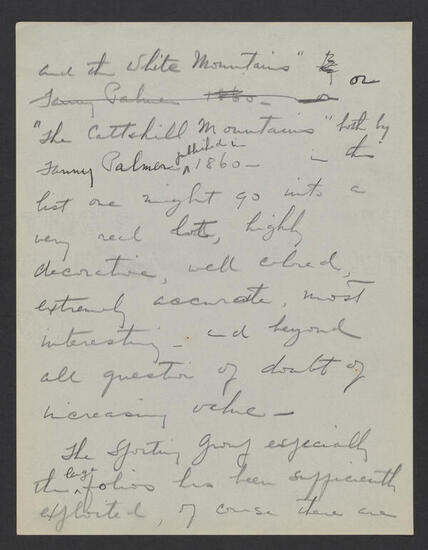 and the White Mountains" by
Fanny Palmer 1860 — or or
"The Cattskill Mountains" both by
Fanny Palmer published in 1860 — in this
list one might go into a
very real lots, highly
decorative, well colored,
extremely accurate, most
interesting — and beyond
all question of doubt of
increasing value —
The Sporting Group especially
the large folios has been sufficiently
exploited, of course there are